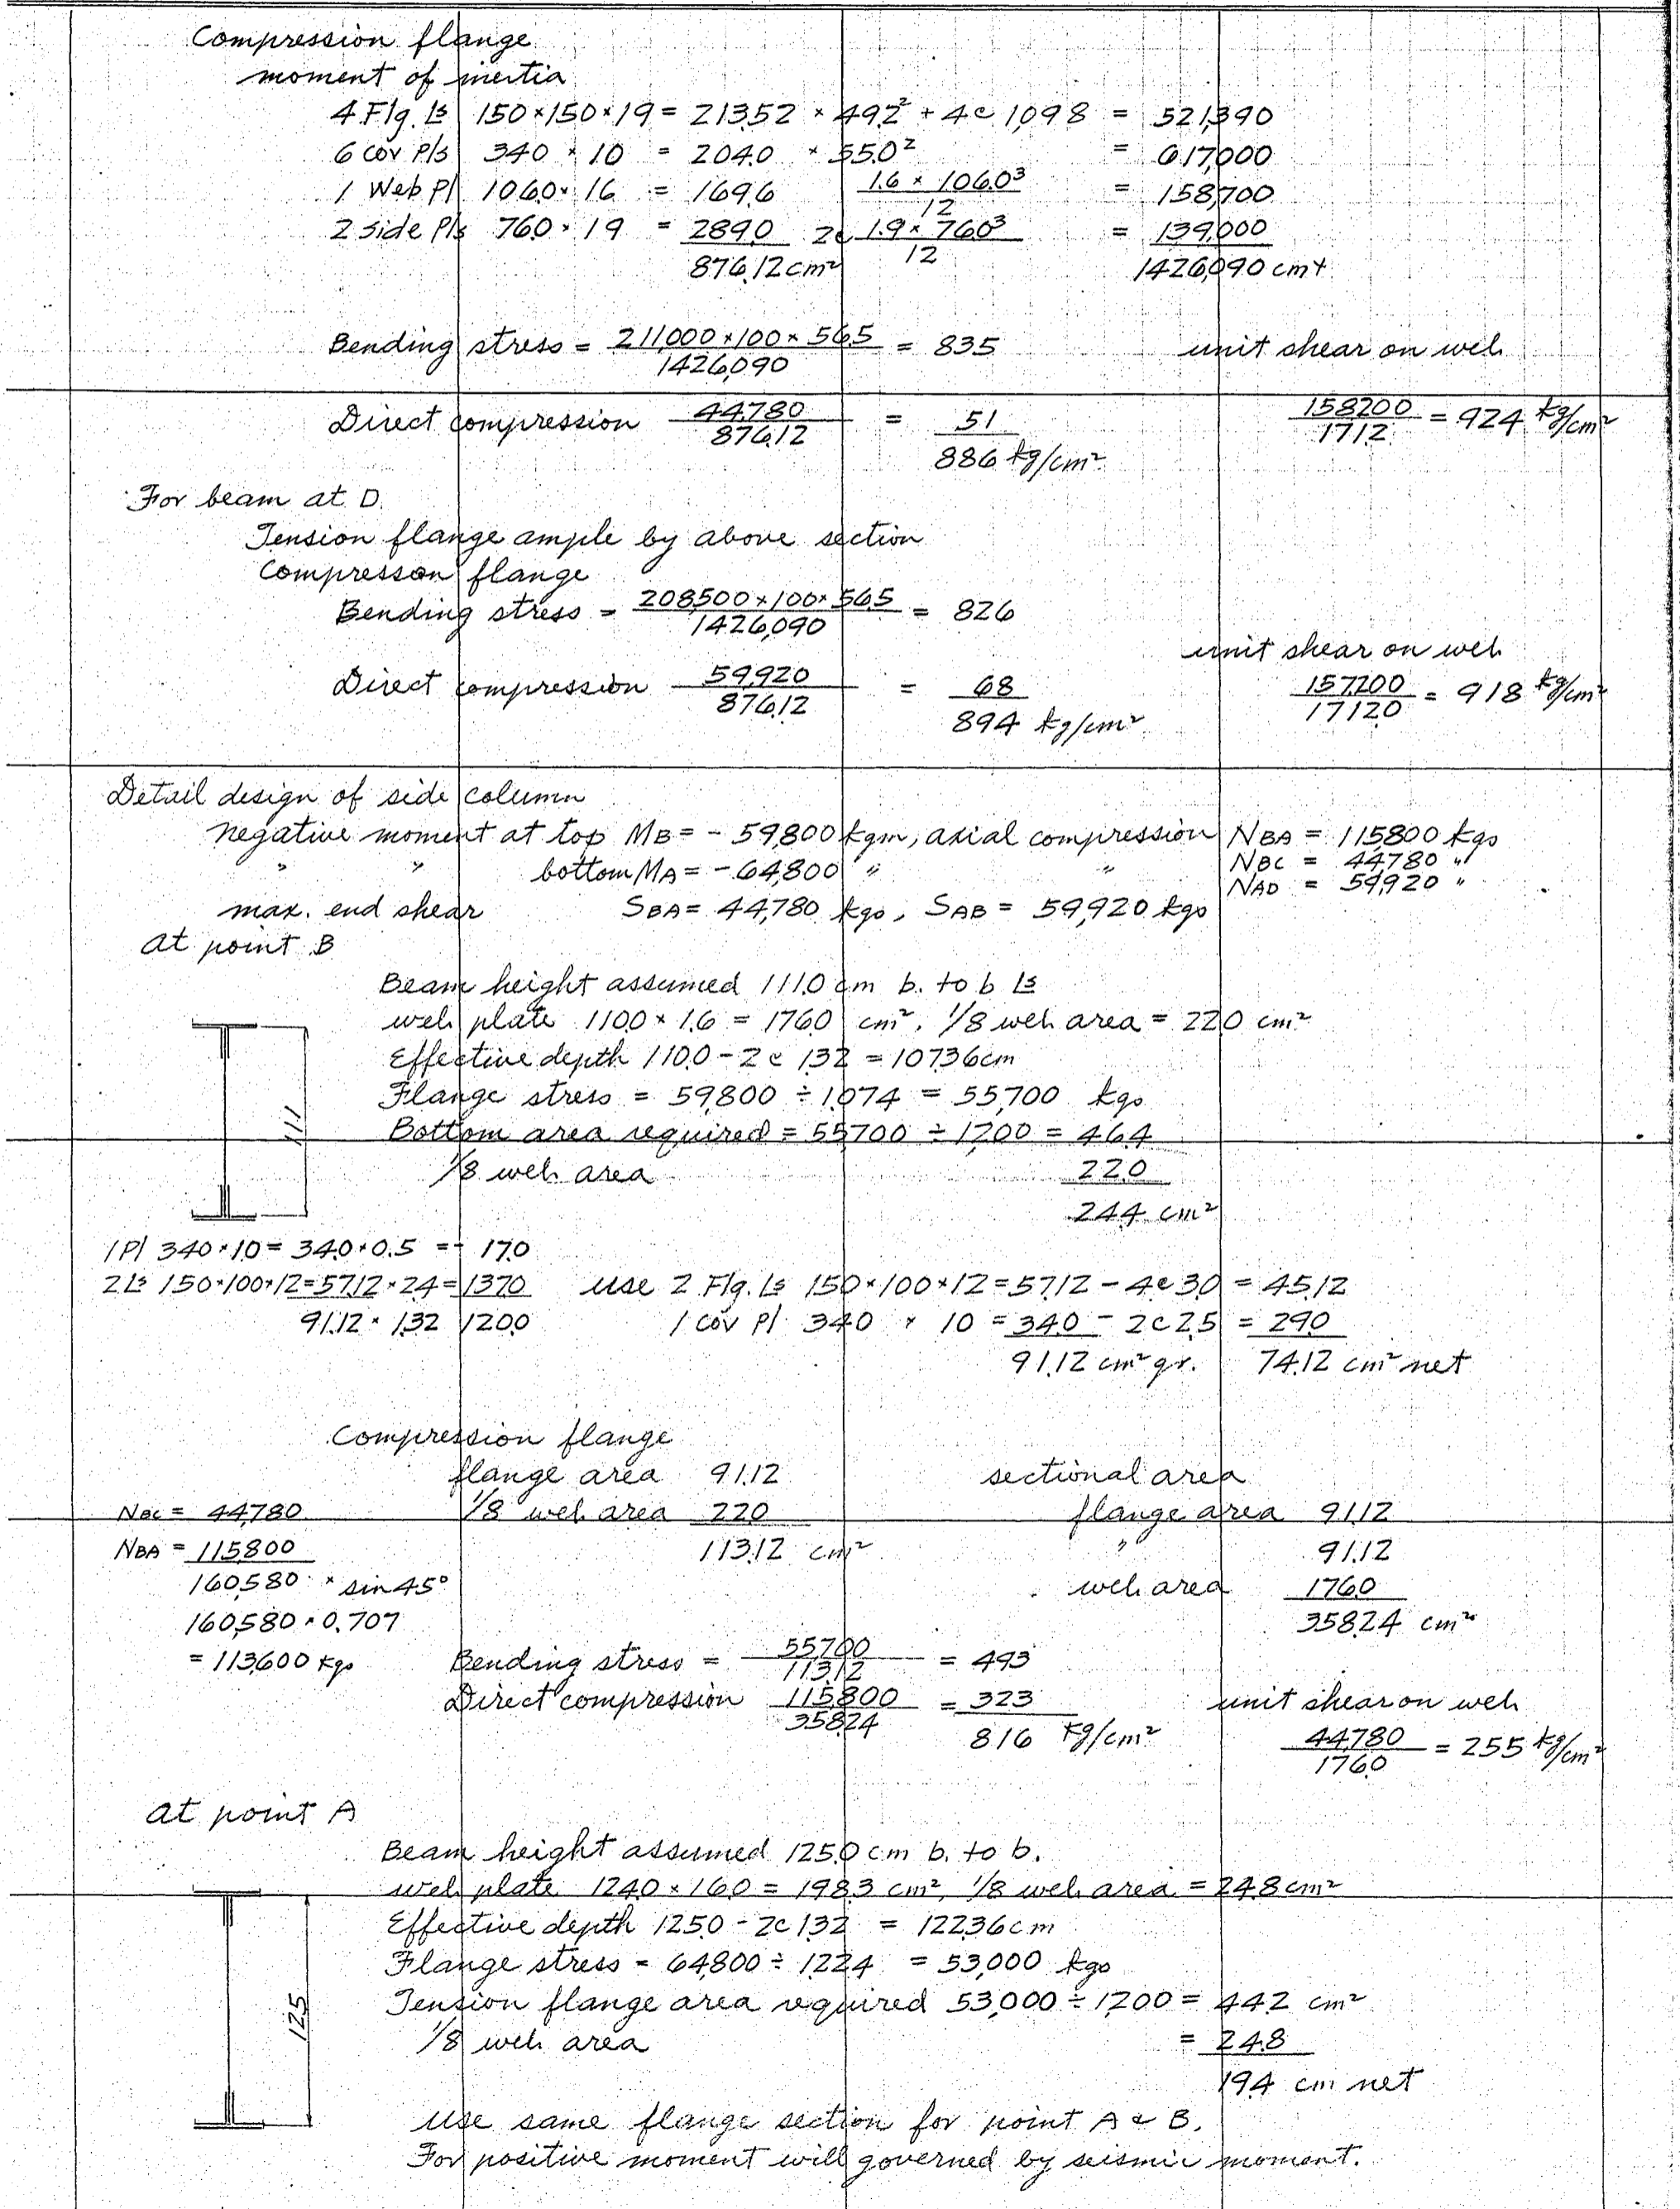 Compression flange
moment of inertia
4 Flg. Ls 150×150×19 = 213.52 × 49.2² + 4@ 1,098 = 521,390
6 cov Pls 340 × 10 = 204.0 × 55.0² = 617,000
1 Web Pl 1060 × 16 = 169.6 1.6 × 106.0³ / 12 = 158,700
2 side Pls 760 × 19 = 289.0 2@ 1.9 × 76.0³ / 12 = 139,000
876.12 cm² 1426,090 cm4
Bending stress = 211,000 × 100 × 56.5 / 1426,090 = 835 unit shear on web
Direct compression 44,780 / 876.12 = 51 158200 / 171.2 = 924 kg/cm²
886 kg/cm²
For beam at D.
Tension flange ample by above section
Compresson flange
Bending stress = 208,500 × 100 × 56.5 / 1426,090 = 826
unit shear on web
Direct compression 59,920 / 876.12 = 68 157200 / 171.20 = 918 kg/cm²
894 kg/cm²
Detail design of side column
negative moment at top MB = - 59,800 kgm, axial compression NBA = 115800 kgs
" " bottom MA = - 64,800 " " NBC = 44780 "
NAD = 59,920 "
max. end shear SBA = 44,780 kgs, SAB = 59,920 kgs
at point B
Beam height assumed 111.0 cm b. to b Ls
web plate 110.0 × 1.6 = 176.0 cm², 1/8 web area = 22.0 cm²
Effective depth 110.0 - 2@ 1.32 = 107.36 cm
Flange stress = 59,800 ÷ 1.074 = 55,700 kgs
111
Bottom area required = 55700 ÷ 1200 = 46.4
1/8 web area 22.0
24.4 cm²
1 Pl 340 × 10 = 34.0 × 0.5 = - 17.0
2 Ls 150×100×12 = 57.12 × 2.4 = 137.0 use 2 Flg. Ls 150×100×12 = 57.12 - 4@ 3.0 = 45.12
91.12 × 1.32 120.0 1 cov Pl 340 × 10 = 34.0 - 2@ 2.5 = 29.0
91.12 cm² gr. 74.12 cm² net
Compression flange
flange area 91.12 sectional area
NBC = 44,780 1/8 web area 22.0 flange area 91.12
NBA = 115800 113.12 cm² " 91.12
160,580 × sin 45° web area 176.0
160,580 × 0.707 358.24 cm²
= 113,600 kgs Bending stress = 55700 / 113.12 = 493
Direct compression 115800 / 358.24 = 323 unit shear on web
816 kg/cm² 44,780 / 176.0 = 255 kg/cm²
at point A
Beam height assumed 125.0 cm b. to b.
web plate 124.0 × 16.0 = 198.3 cm², 1/8 web area = 24.8 cm²
Effective depth 125.0 - 2@ 1.32 = 122.36 cm
Flange stress = 64,800 ÷ 1.224 = 53,000 kgs
125
Tension flange area required 53,000 ÷ 1200 = 44.2 cm²
1/8 web area = 24.8
19.4 cm net
use same flange section for point A & B.
For positive moment will governed by seismic moment.